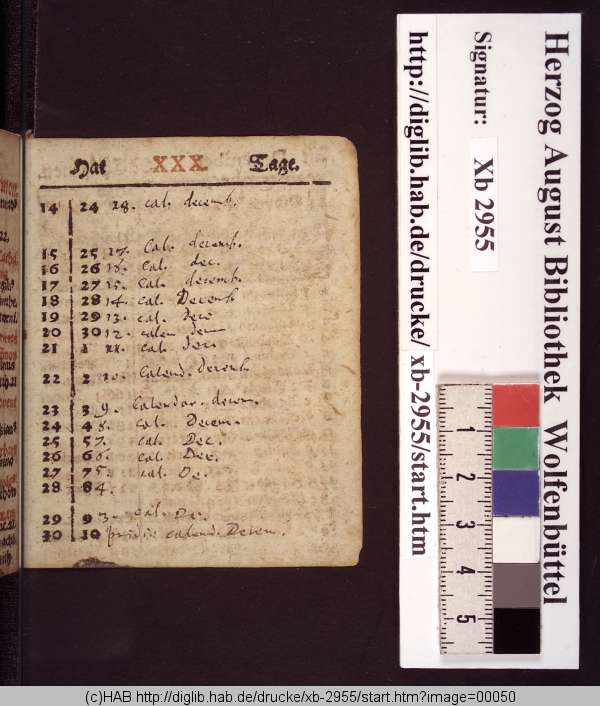 Hat XXX. Tage.
14 24 18. cal. decemb.
15 25 17. Cal. decemb.
16 26 16. Cal. dec.
17 27 15. Cal. decemb.
18 28 14. cal. Decemb
19 29 13. cal. Dece
20 30 12. calen dem
21 1 11. cal. Dec.
22 2 10. Calend. decemb.
23 3 9. Calendar. decem.
24 4 8. cal. Decem.
25 5 7. cal. Dec.
26 6 6. cal. Dec.
27 7 5. cal. De.
28 8 4.
29 9 3. cal. De.
30 10 pridie calend. Decem.
Herzog August Bibliothek Wolfenbüttel
Signatur: Xb 2955
http://diglib.hab.de/drucke/ xb-2955/start.htm
1
2
3
4
5
(c)HAB http://diglib.hab.de/drucke/xb-2955/start.htm?image=00050